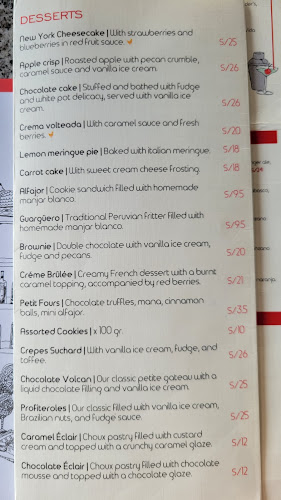 DESSERTS
New York Cheesecake | With strawberries and
blueberries in red fruit sauce. S/25
Apple crisp | Roasted apple with pecan crumble,
caramel sauce and vanilla ice cream. S/26
Chocolate cake | Stuffed and bathed with fudge
and white pot delicacy, served with vanilla
ice cream. S/26
Crema volteada | With caramel sauce and fresh
berries. S/20
Lemon meringue pie | Baked with italian meringue. S/18
Carrot cake | With sweet cream cheese frosting. S/18
Alfajor | Cookie sandwich filled with homemade
manjar blanco. S/9.5
Guargüero | Traditional Peruvian fritter filled with
homemade manjar blanco. S/9.5
Brownie | Double chocolate with vanilla ice cream,
fudge and pecans. S/20
Crème Brûlée | Creamy French dessert with a burnt
caramel topping, accompanied by red berries. S/21
Petit Fours | Chocolate truffles, mana, cinnamon
balls, mini alfajor. S/3.5
Assorted Cookies | x 100 gr. S/10
Crepes Suchard | With vanilla ice cream, fudge, and
toffee. S/26
Chocolate Volcan | Our classic petite gateau with a
liquid chocolate filling and vanilla ice cream. S/25
Profiteroles | Our classic filled with vanilla ice cream,
Brazilian nuts, and fudge sauce. S/25
Caramel Éclair | Choux pastry filled with custard
cream and topped with a crunchy caramel glaze. S/12
Chocolate Éclair | Choux pastry filled with chocolate
mousse and topped with a chocolate glaze. S/12